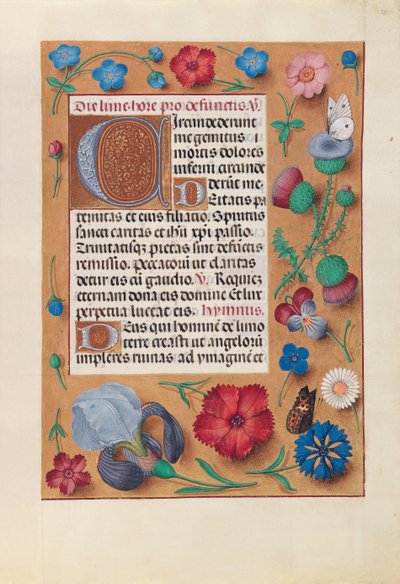 Die lune · hore pro defunctis. V̉
Circundederunt
me gemitus
mortis dolores
inferni circunde
derūt me.
Deitatis pa
ternitas et eius filiatio. Spiritus
sancti caritas et ihū xp̄i passio.
Trinitatisqꝫ pietas sint defunctis
remissio. Peccatorū ut claritas
detur eis cū gaudio. V̉. Requiē
eternam dona eis domine Et lux
perpetua luceat eis. hymnus.
Deus qui hominē de limo
terre creasti ut angelorū
impleres ruinas ad ymaginē et